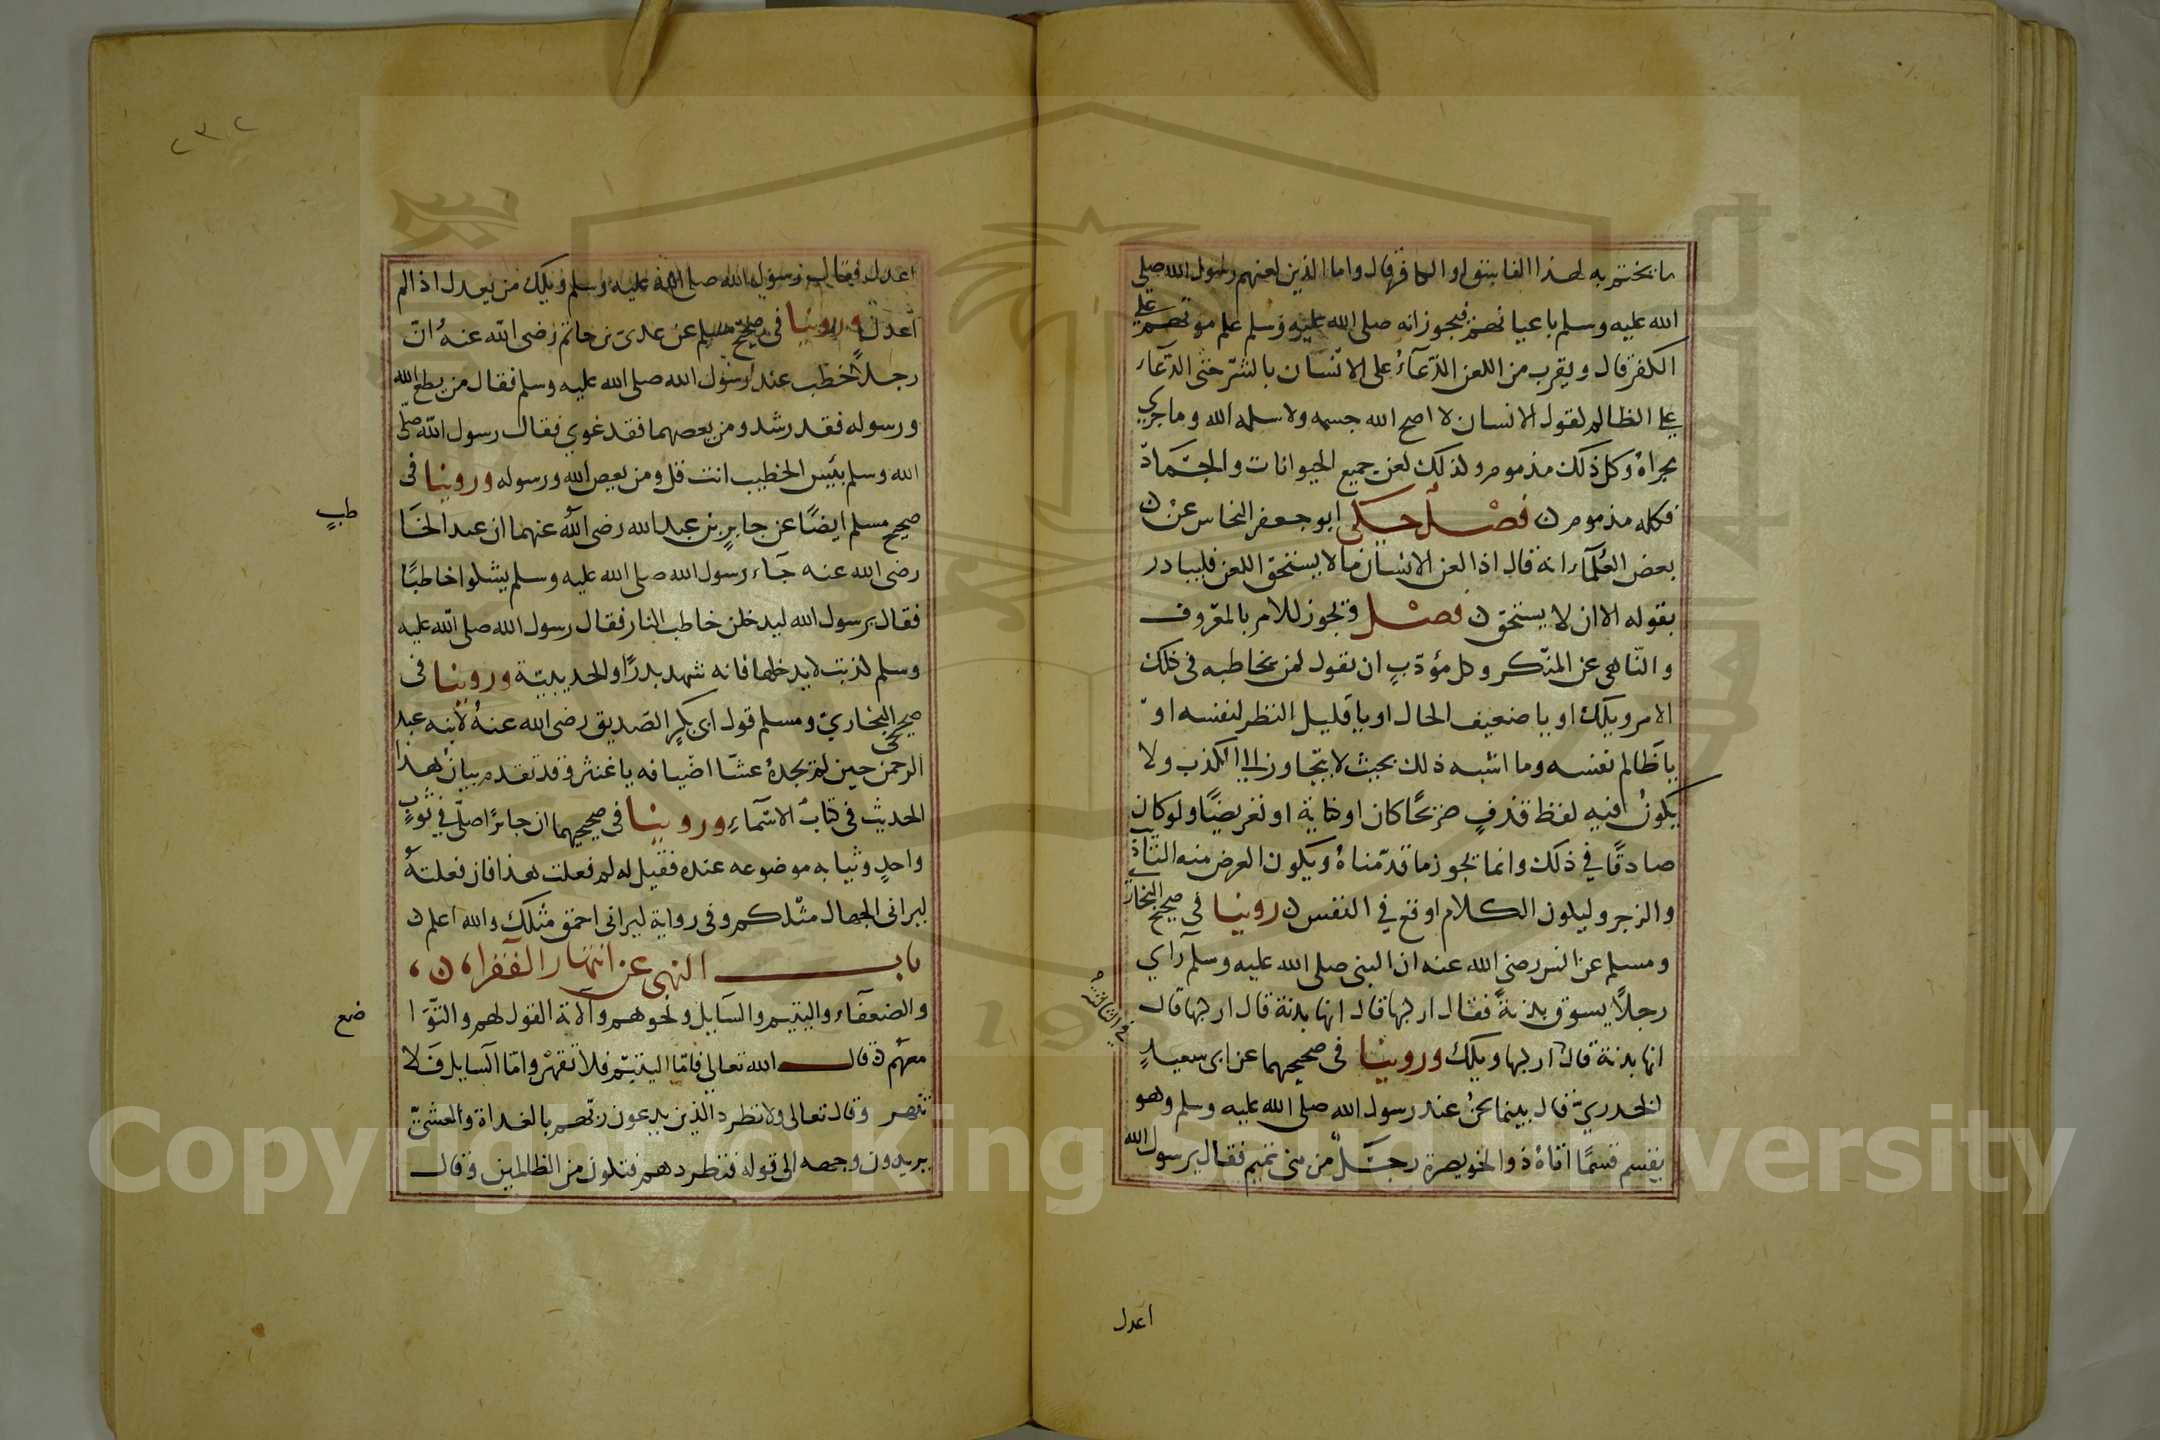 ما يختم به لهذا الفاسق او الكافر قال واما الذين لعنهم رسول الله صلى
الله عليه وسلم باعيانهم فيجوز انه صلى الله عليه وسلم علم موتهم على
الكفر قال ويقرب من اللعن الدعاء على الانسان بالشر حتى الدعاء
على الظالم لقول الانسان لا اصح الله جسمه ولا سلمه الله وما جرى
مجراه وكل ذلك مذموم وكذلك لعن جميع الحيوانات والجماد
فكله مذموم ن فصل حكى ابو جعفر النحاس عن
بعض العلماء انه قال اذا لعن الانسان ما لا يستحق اللعن فليبادر
بقوله الا ان لا يستحق ن فصل ويجوز للامر بالمعروف
والناهى عن المنكر وكل مؤدب ان يقول لمن يخاطبه فى ذلك
الامر ويلك او يا ضعيف الحال او يا قليل النظر لنفسه او
يا ظالم نفسه وما اشبه ذلك بحيث لا يتجاوز الى الكذب ولا
يكون فيه لفظ قذف صريحا كان او كناية او تعريضا ولو كان
صادقا في ذلك وانما يجوز ما قدمناه ويكون الغرض منه التاديب
والزجر وليكون الكلام اوقع في النفس ن روينا في صحيح البخارى
ومسلم عن انس رضى الله عنه ان النبى صلى الله عليه وسلم راي
رجلا يسوق بدنة فقال اركبها قال انها بدنة قال اركبها قال
في الثالثة
انها بدنة قال اركبها ويلك وروينا فى صحيحيهما عن ابى سعيد
الخدري قال بينما نحن عند رسول الله صلى الله عليه وسلم وهو
يقسم قسما اتاه ذو الخويصرة رجل من بنى تميم فقال يرسول الله
اعدل
٢٣٢
اعدل فقال رسول الله صلى الله عليه وسلم ويلك من يعدل اذا لم
اعدل وروينا فى صحيح مسلم عن عدى بن حاتم رضى الله عنه ان
رجلا خطب عند رسول الله صلى الله عليه وسلم فقال من يطع الله
ورسوله فقد رشد ومن يعصهما فقد غوي فقال رسول الله صلى
الله وسلم بئس الخطيب انت قل ومن يعص الله ورسوله وروينا فى
طب
صحيح مسلم ايضا عن جابر بن عبد الله رضى الله عنهما ان عبدا لحا
رضى الله عنه جاء رسول الله صلى الله عليه وسلم يشكوا خاطبا
فقال يرسول الله ليدخلن خاطب النار فقال رسول الله صلى الله عليه
وسلم كذبت لا يدخلها فانه شهد بدرا والحديبية وروينا فى
صحيحى البخاري ومسلم قول ابى بكر الصديق رضى الله عنه لابنه عبد
الرحمن حين لم يجده عشا اضيافه يا غنثر وقد تقدم بيان هذا
الحديث فى كتاب الاسماء وروينا فى صحيحيهما ان جابرا صلى في ثوب
واحد وثيابه موضوعه عنده فقيل له لم فعلت هذا فان فعلته
ليرانى الجهال مثلكم وفى رواية ليرانى احمق مثلك والله اعلم ن
باب النهى عن انتهار الفقراء ن
والضعفاء واليتيم والسايل ونحوهم والانة القول لهم والتوا
ضع
معهم ن قال الله تعالى فاما اليتيم فلا تقهر واما السايل فلا
تنهر وقال تعالى ولا تطرد الذين يدعون ربهم بالغداة والعشى
يريدون وجهه الى قوله فتطردهم فتكون من الظالمين وقال
Copyright © King Saud University